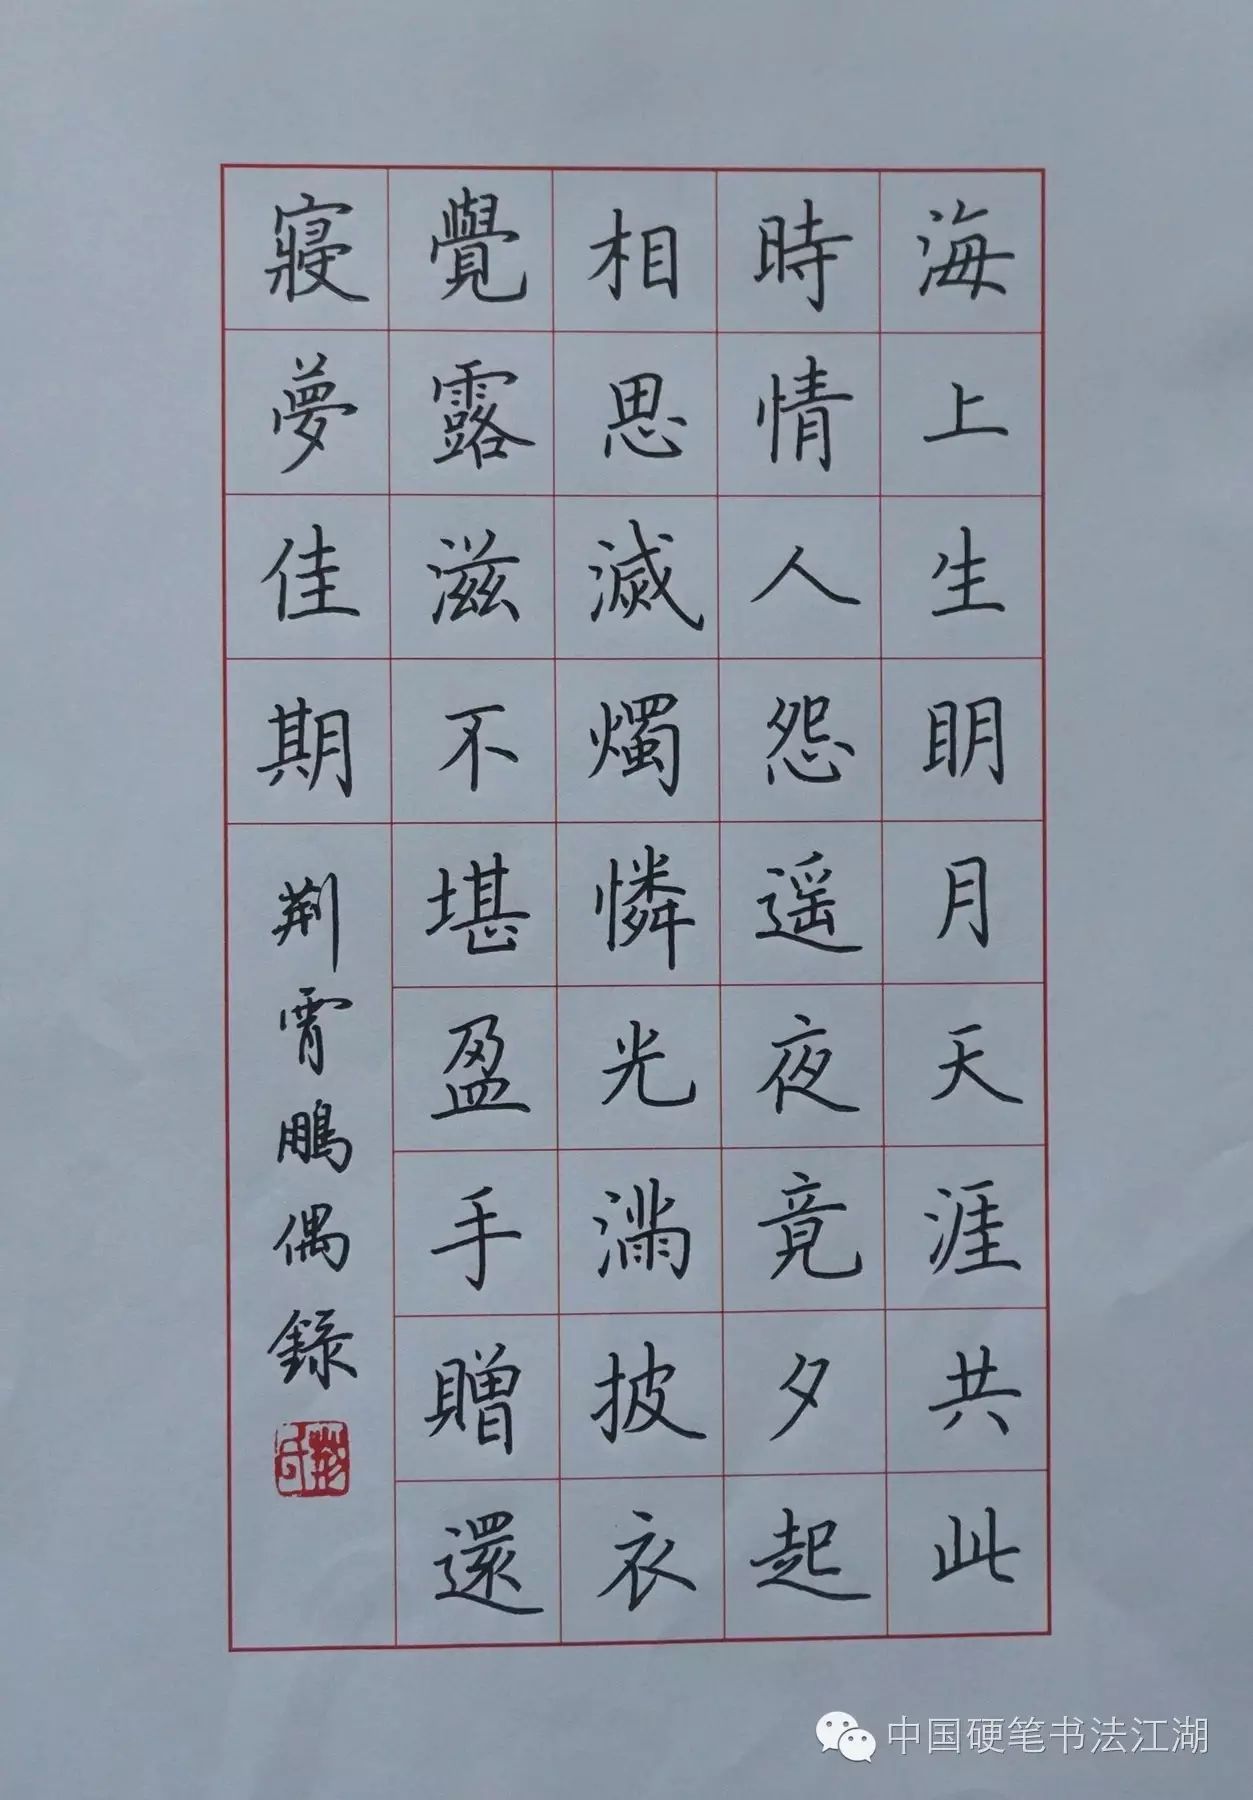 海上生明月天涯共此
時情人怨遥夜竟夕起
相思滅燭憐光滿披衣
覺露滋不堪盈手贈還
寢夢佳期
荆霄鵬偶錄
中国硬笔书法江湖